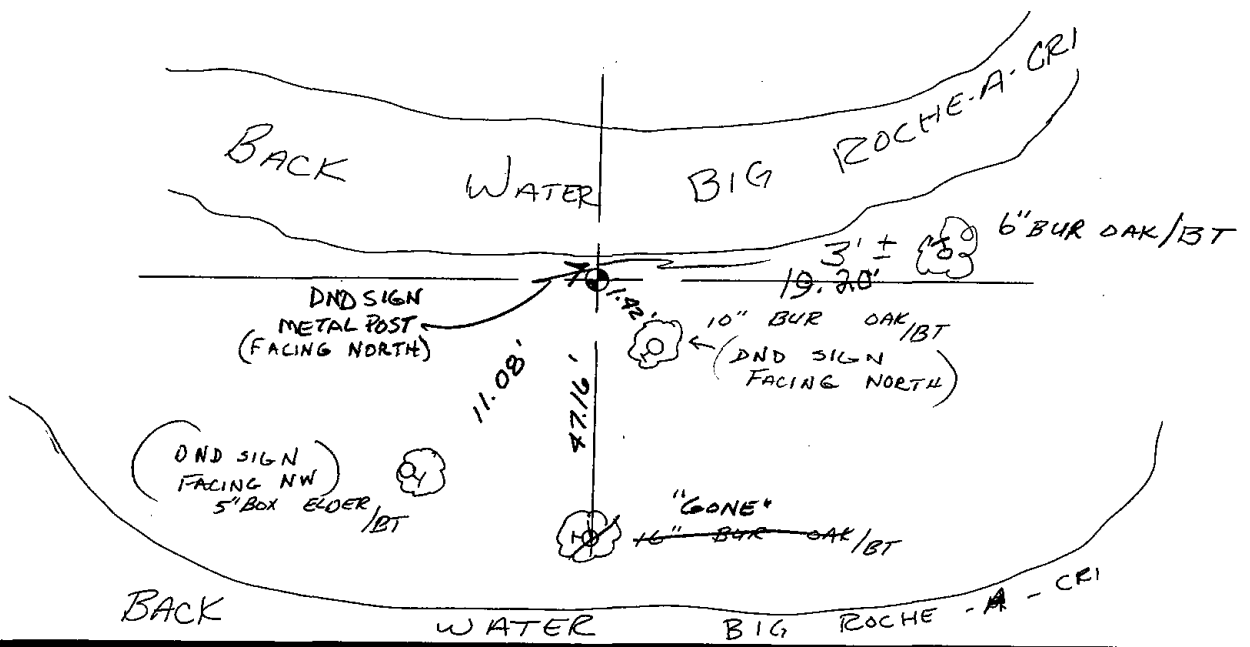 BACK WATER BIG ROCHE-A-CRI
6" BUR OAK/BT
3' ±
19.20'
DND SIGN
METAL POST
(FACING NORTH)
1.42'
10" BUR OAK/BT
(DND SIGN
FACING NORTH)
11.08'
47.16'
(DND SIGN
FACING NW)
5" BOX ELDER/BT
"GONE"
16" BUR OAK/BT
BACK WATER BIG ROCHE-A-CRI